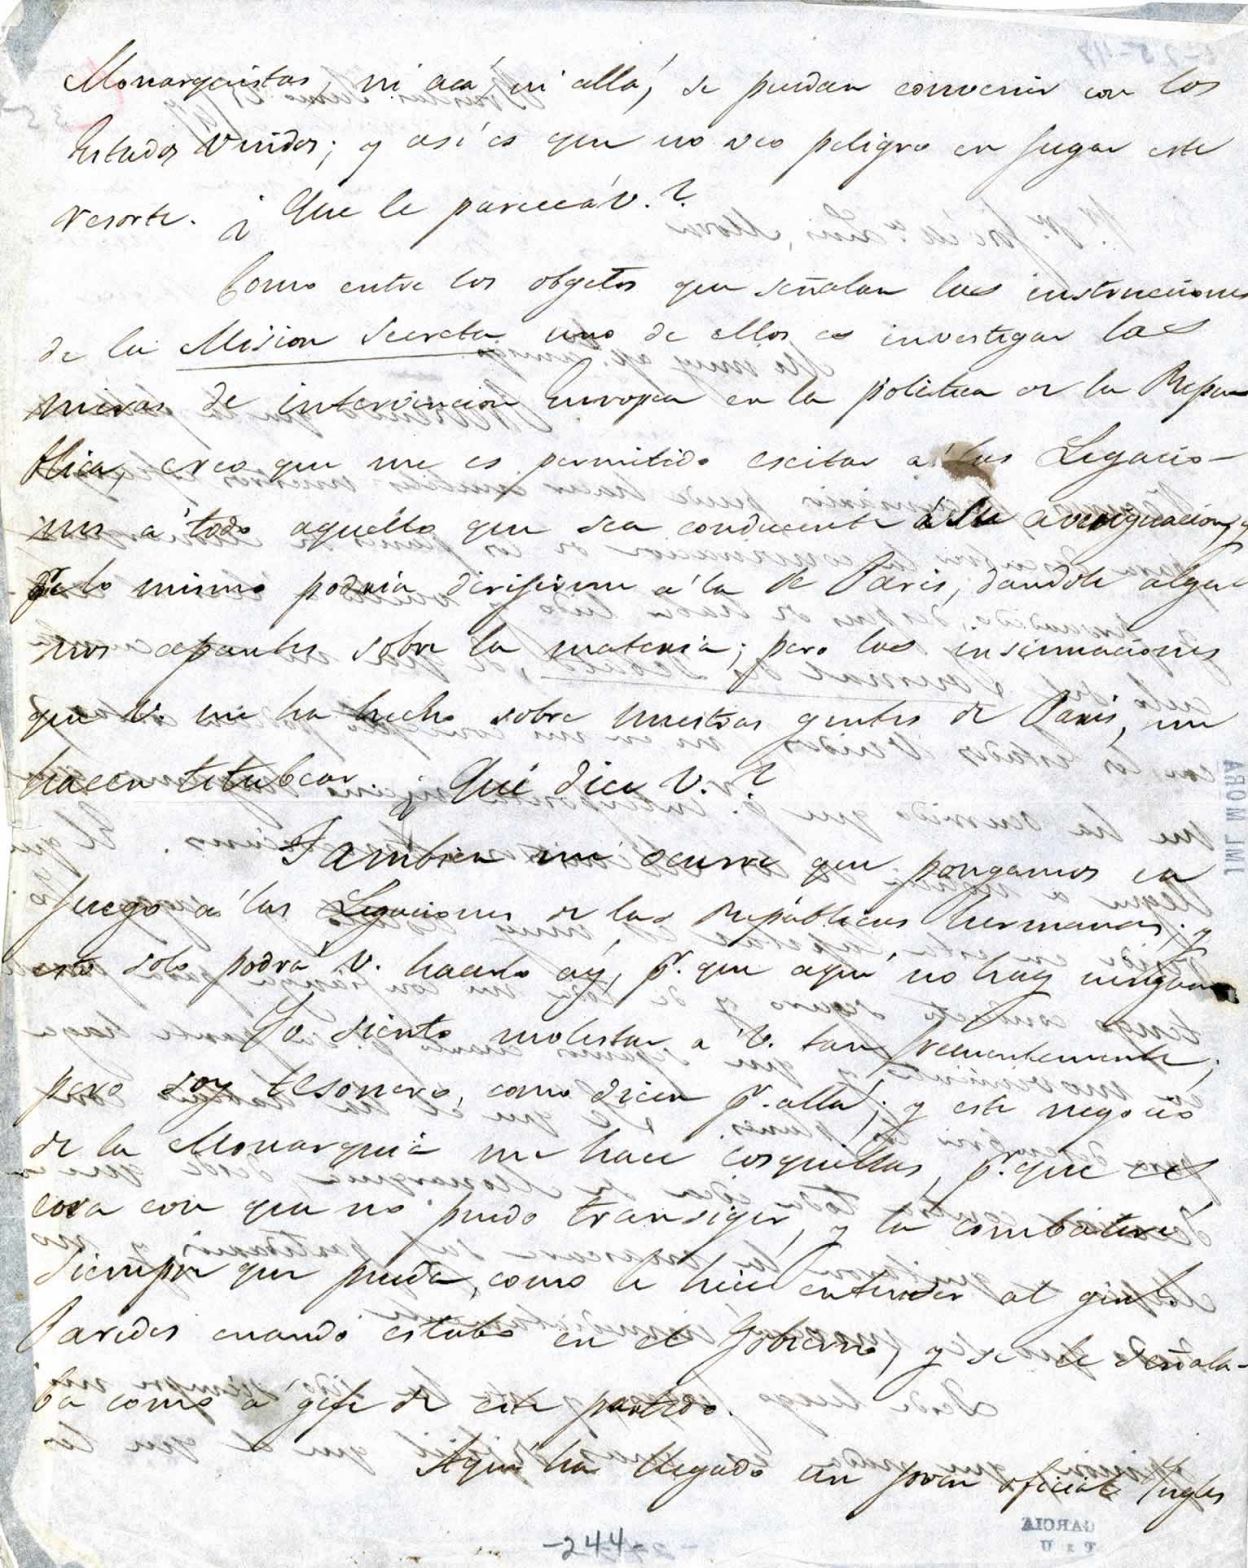 Monarquistas, ni acá, ni allá, se puedan convenir con los
Estados Unidos; y así es que no veo peligro en jugar este
resorte. ¿Que le parece á V.?
Como entre los objetos que señalan las instrucciones
de la Mision Secreta uno de ellos es investigar las
miras de intervencion Europea en la politica de la Repu
blica, creo que me es permitido escitar á las Legacio-
nes á todo aquello que sea conducente á su averiguacion, y
pr. lo mismo podria dirijirme á la de Paris, dandole algu
nos apuntes sobre la materia; pero las insinuaciones
que V. me ha hecho sobre nuestras gentes de Paris, me
hacen titubear. ¿Qué dice V.?
Tambien me ocurre que pongamos en
juego a las Legaciones de las Repúblicas hermanas; y
esto solo podrá V. hacerlo ay, pr. que aqui no hay ninguna
Yo siento molestar á V. tan frecuentemente;
pero soy tesonero, como dicen pr. allá; y este negocio
de la Monarquia me hace cosquillas, pr. que es
cosa con que no puedo transigir, y la combatiré
siempre que pueda, como le hice entender al genl.
Paredes cuando estaba en el Gobierno, y se le señala-
ba como á gefe de este partido.
Aqui ha llegado un joven oficial Ingles
-244-
JML MORA
GARCIA